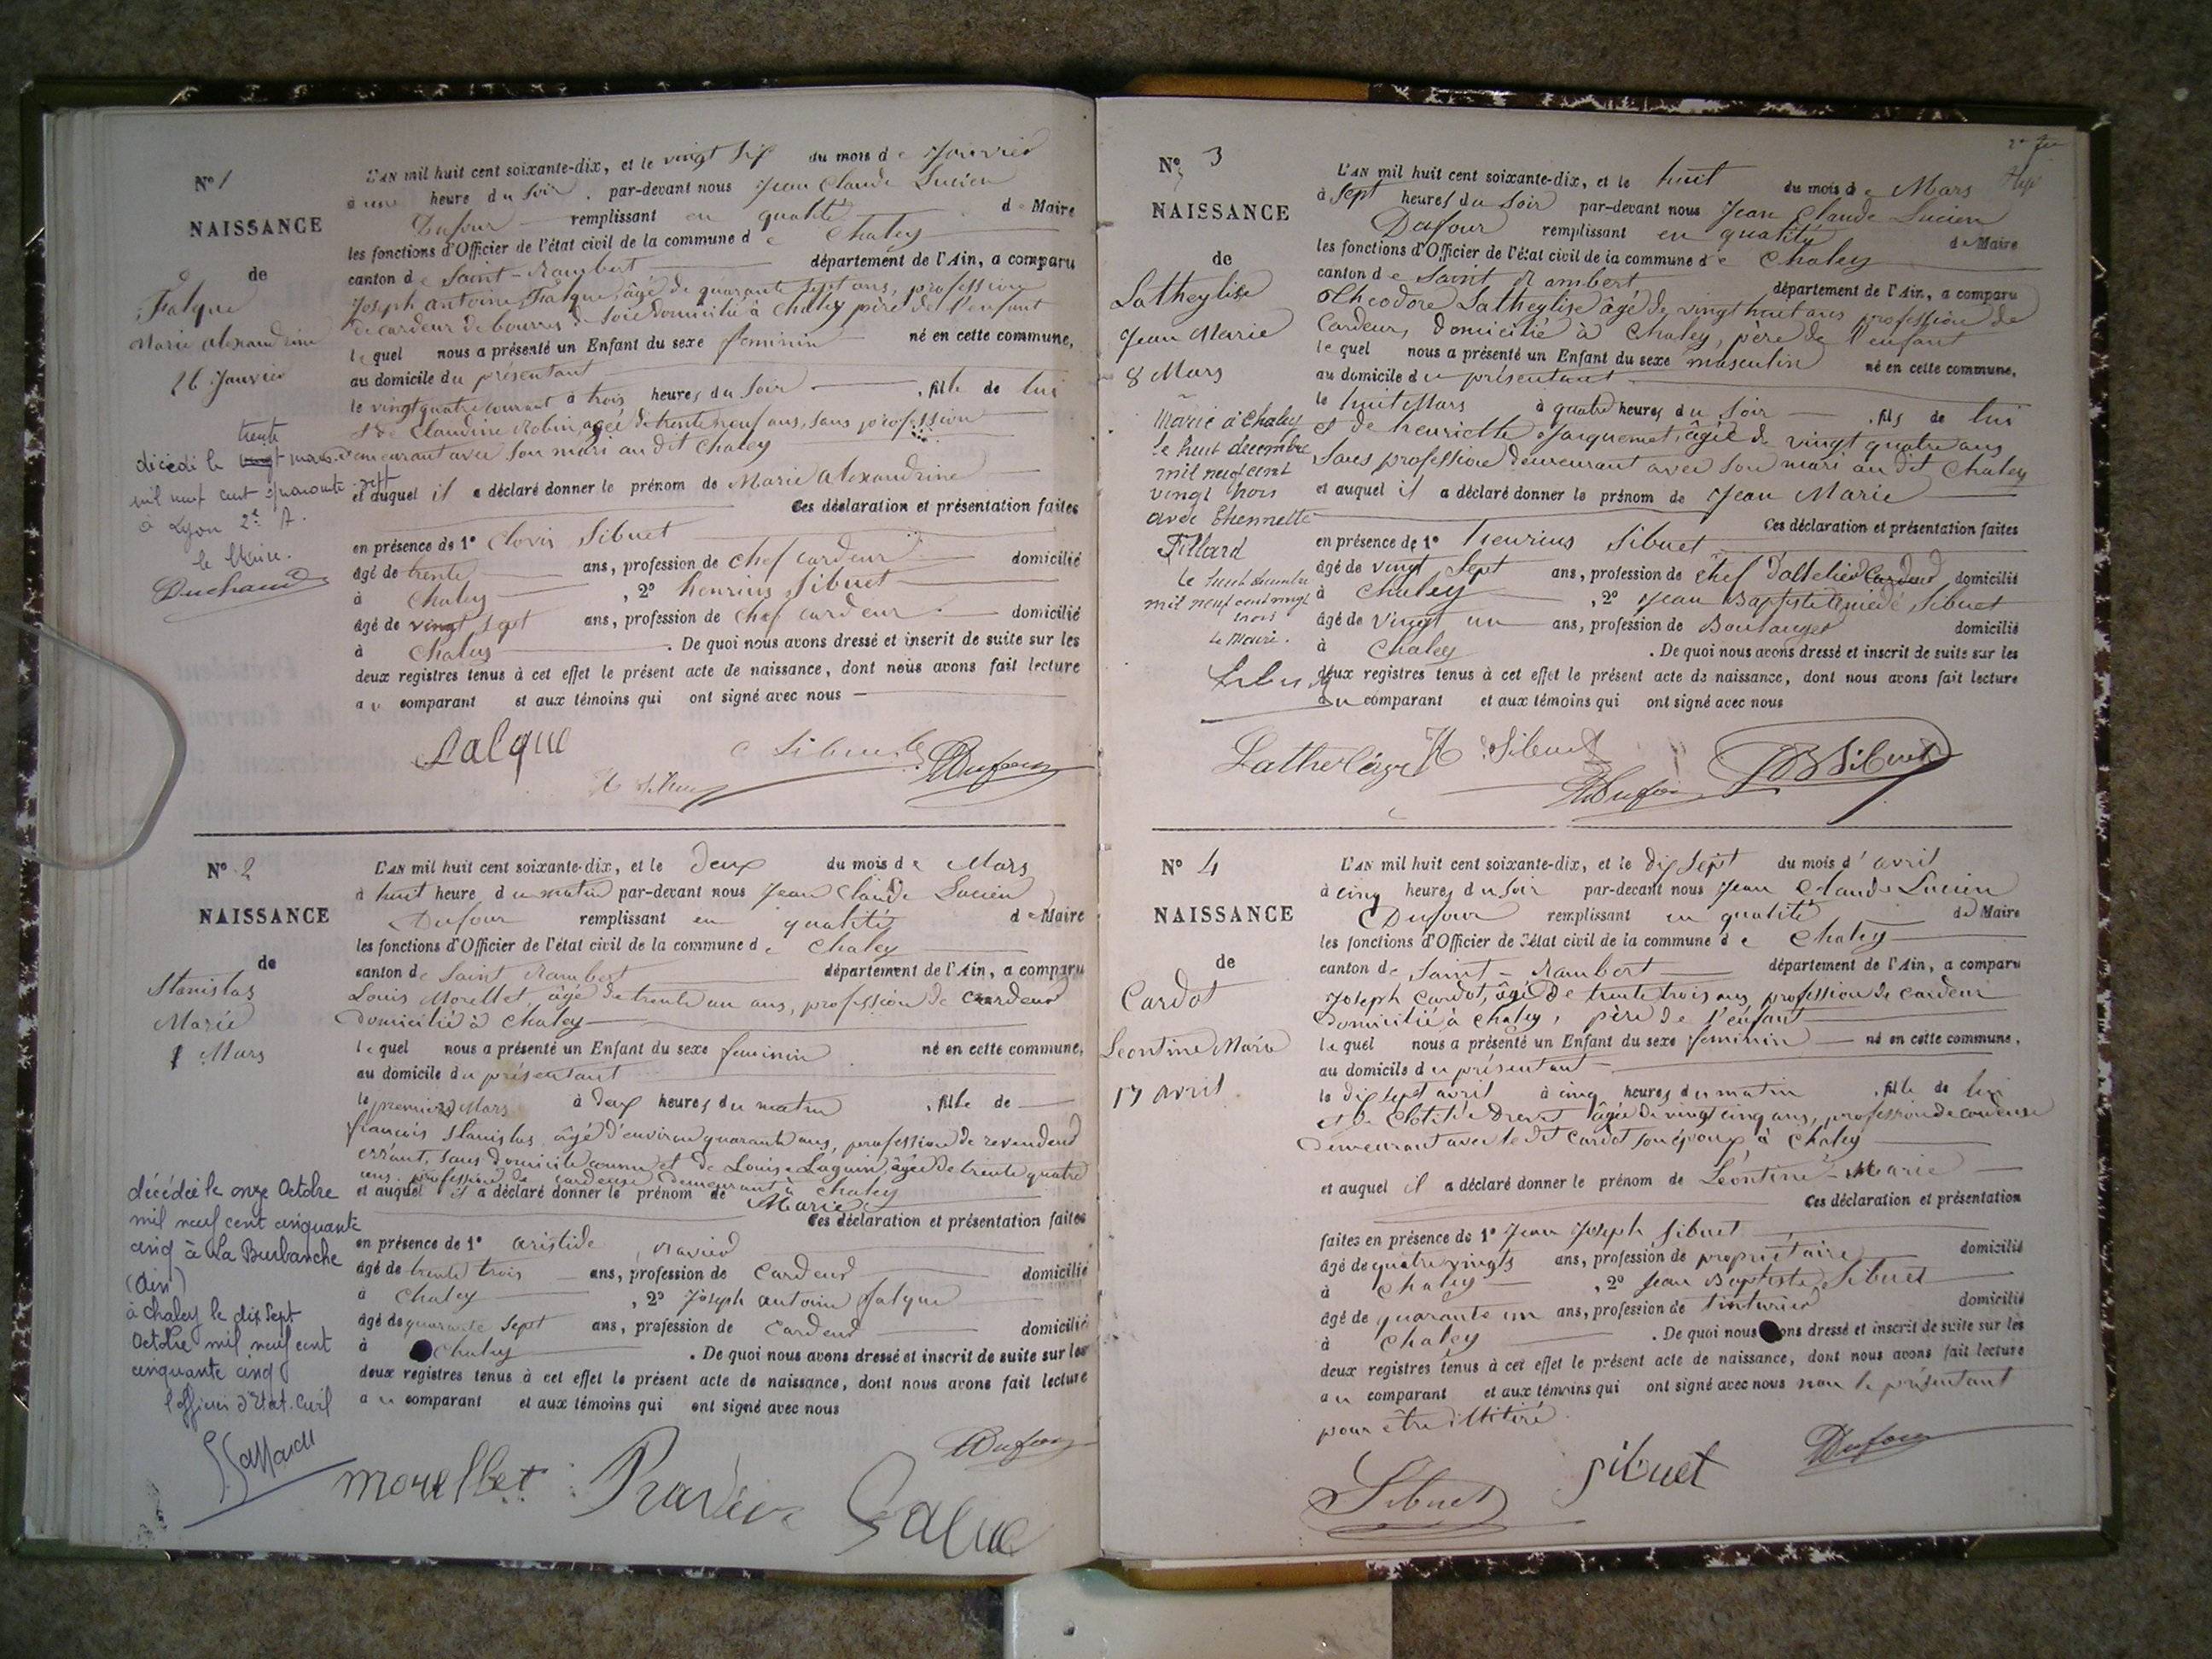 N° 1
NAISSANCE
de
Falque
Marie Alexandrine
26 Janvier
trente
décédé le vingt mars
mil neuf cent quarante-sept
à Lyon 2e A.
le Maire.
L'AN mil huit cent soixante-dix, et le vingt six du mois de Janvier
à une heure du soir, par-devant nous Jean Claude Lucien
Dufour remplissant en qualité de Maire
les fonctions d'Officier de l'état civil de la commune de Chaley
canton de Saint-Rambert département de l'Ain, a comparu
Joseph Antoine Falque, âgé de quarante sept ans, profession
de cardeur de bourres de soie domicilié à Chaley père de l'enfant
lequel nous a présenté un Enfant du sexe feminin né en cette commune,
au domicile du présentant
le vingt quatre courant à trois heures du soir, fille de lui
et de Claudine Robin, agée de trente neuf ans, sans profession
demeurant avec son mari au dit Chaley
et auquel il a déclaré donner le prénom de Marie Alexandrine
Ces déclaration et présentation faites
en présence de 1° Clovis Sibuet
âgé de trente ans, profession de chef cardeur domicilié
à Chaley, 2° henrius Sibuet
âgé de vingt sept ans, profession de chef cardeur domicilié
à Chaley. De quoi nous avons dressé et inscrit de suite sur les
deux registres tenus à cet effet le présent acte de naissance, dont nous avons fait lecture
au comparant et aux témoins qui ont signé avec nous
Falque C Sibuet
H Sibuet Dufour
N° 2
NAISSANCE
de
Stanislas
Marie
1 Mars
décédée le onze Octobre
mil neuf cent cinquante
cinq à La Burbanche
(Ain)
à Chaley le dix sept
Octobre mil neuf cent
cinquante cinq
l'officier d'Etat-Civil
L'AN mil huit cent soixante-dix, et le deux du mois de Mars
à huit heure du matin par-devant nous Jean Claude Lucien
Dufour remplissant en qualité de Maire
les fonctions d'Officier de l'état civil de la commune de Chaley
canton de Saint Rambert département de l'Ain, a comparu
Louis Morellet, âgé de trente un ans, profession de Cardeur
Domicilié à Chaley
lequel nous a présenté un Enfant du sexe feminin né en cette commune,
au domicile du présentant
le premier Mars à deux heures du matin, fille de
françois Stanislas, âgé d'environ quarante ans, profession de revendeur
errant, sans domicile connu et de Louise Laguin, âgée de trente quatre
ans, profession de cardeuse demeurant à Chaley
et auquel il a déclaré donner le prénom de Marie
Ces déclaration et présentation faites
en présence de 1° Aristide Ravier
âgé de trente trois ans, profession de Cardeur domicilié
à Chaley, 2° Joseph Antoine Falque
âgé de quarante sept ans, profession de Cardeur domicilié
à Chaley. De quoi nous avons dressé et inscrit de suite sur les
deux registres tenus à cet effet le présent acte de naissance, dont nous avons fait lecture
au comparant et aux témoins qui ont signé avec nous
Dufour
Morellet Ravier Falque
N° 3
NAISSANCE
de
Latheylise
Jean Marie
8 Mars
Marié à Chaley
le huit décembre
mil neuf cent
vingt trois
avec Etiennette
Fillard
le huit décembre
mil neuf cent vingt
trois
le Maire.
L'AN mil huit cent soixante-dix, et le huit du mois de Mars
à sept heures du soir par-devant nous Jean Claude Lucien
Dufour remplissant en qualité de Maire
les fonctions d'Officier de l'état civil de la commune de Chaley
canton de Saint Rambert département de l'Ain, a comparu
Theodore Latheylise âgé de vingt huit ans profession de
Cardeur, domicilié à Chaley, père de l'enfant
lequel nous a présenté un Enfant du sexe masculin né en cette commune,
au domicile du présentant
le huit Mars à quatre heures du soir, fils de lui
et de henriette Jacquemet, âgée de vingt quatre ans
sans profession demeurant avec son mari au dit Chaley
et auquel il a déclaré donner le prénom de Jean Marie
Ces déclaration et présentation faites
en présence de 1° henrius Sibuet
âgé de vingt sept ans, profession de chef d'attelier Cardeur domicilié
à Chaley, 2° Jean Baptiste Sibuet
âgé de vingt un ans, profession de Boulanger domicilié
à Chaley. De quoi nous avons dressé et inscrit de suite sur les
deux registres tenus à cet effet le présent acte de naissance, dont nous avons fait lecture
au comparant et aux témoins qui ont signé avec nous
H Sibuet JB Sibuet
Dufour
N° 4
NAISSANCE
de
Cardot
Leontine Marie
17 avril
L'AN mil huit cent soixante-dix, et le dix sept du mois d'avril
à cinq heures du soir par-devant nous Jean Claude Lucien
Dufour remplissant en qualité de Maire
les fonctions d'Officier de l'état civil de la commune de Chaley
canton de Saint-Rambert département de l'Ain, a comparu
Joseph Cardot, âgé de trente trois ans, profession de cardeur
Domicilié à Chaley, père de l'enfant
lequel nous a présenté un Enfant du sexe feminin né en cette commune,
au domicile du présentant
le dix sept avril à cinq heures du matin, fille de lui
et de Clotilde Drevet âgée de vingt cinq ans, profession de cardeuse
Demeurant avec le dit Cardot son époux à Chaley
et auquel il a déclaré donner le prénom de Léontine-Marie
Ces déclaration et présentation
faites en présence de 1° Jean Joseph Sibuet
âgé de quatre vingts ans, profession de propriétaire domicilié
à Chaley, 2° Jean Baptiste Sibuet
âgé de quarante un ans, profession de tinturier domicilié
à Chaley. De quoi nous avons dressé et inscrit de suite sur les
deux registres tenus à cet effet le présent acte de naissance, dont nous avons fait lecture
au comparant et aux témoins qui ont signé avec nous non le présentant
pour être illitiré.
Sibuet Sibuet Dufour